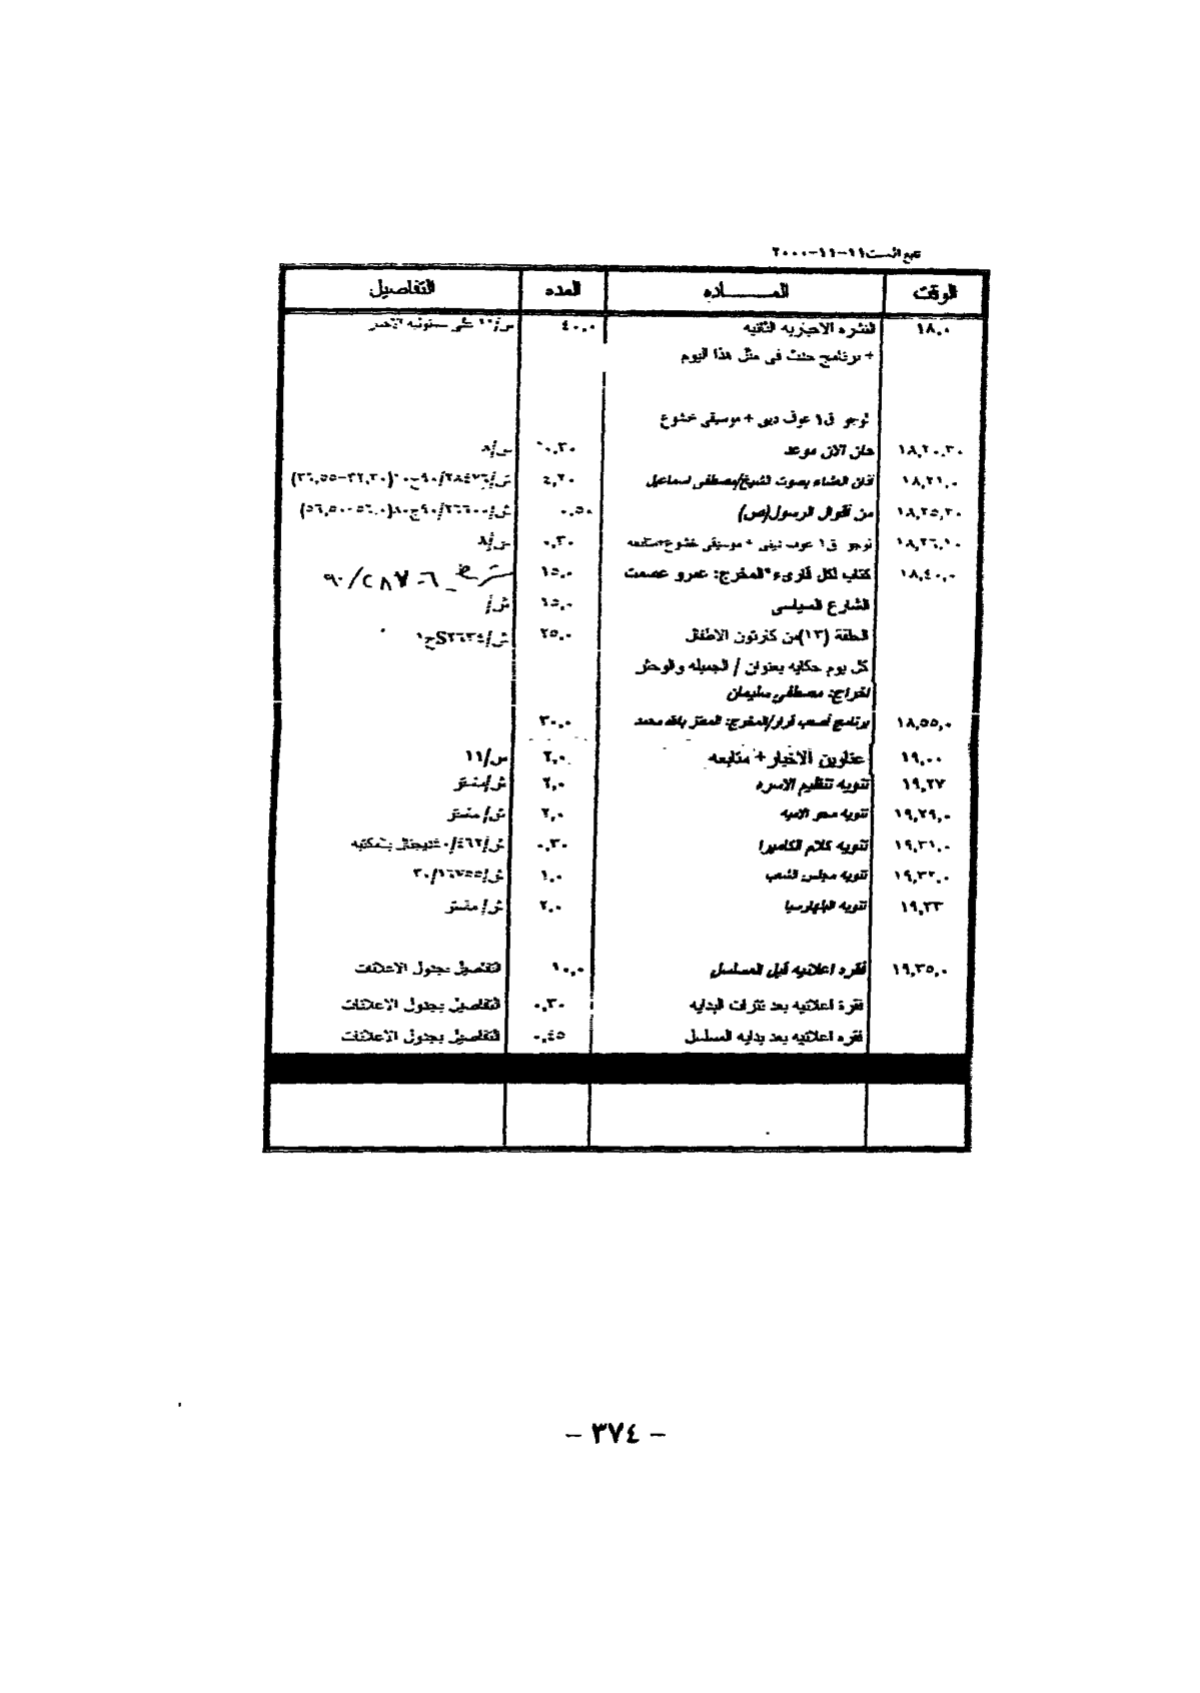 تابع السبت ١١-١١-٢٠٠٠
الوقت المـــــاده المده التفاصيل
١٨,٠ النشره الاخباريه الثانيه ٤٠,٠
+ برنامج حدث فى مثل هذا اليوم
ق١ عوف دينى + موسيقى خشوع
١٨,٢٠,٣٠ حان الان موعد ٠,٣٠ س/٨
١٨,٢١,٠ اذان العشاء بصوت الشيخ/مصطفى اسماعيل ٤,٢٠
١٨,٢٥,٢٠ من اقوال الرسول(ص) ٠,٥٠
١٨,٢٦,١٠ ق١ عوف دينى + موسيقى خشوع+متابعه ٠,٣٠ س/٨
١٨,٤٠,٠ كتاب لكل قارىء المخرج: عمرو عصمت ١٥,٠ شريط ٢٨٧٠٦/٩٠
الشارع السياسى ١٥,٠ ش/
الحلقة (١٣)من كارتون الاطفال ٢٥,٠ ش/S٢٦٣٤ج١
كل يوم حكايه بعنوان / الجميله والوحش
اخراج: مصطفى سليمان
١٨,٥٥,٠ برنامج أصعب قرار/المخرج: المعتز بالله محمد ٣٠,٠
١٩,٠٠ عناوين الاخبار + متابعه ٢,٠ س/١١
١٩,٢٧ تنويه تنظيم الاسره ٢,٠ ش/مفتر
١٩,٢٩,٠ تنويه محو الاميه ٢,٠ ش/مفتر
١٩,٣١,٠ تنويه كلام الكاميرا ٠,٣٠
١٩,٣٢,٠ تنويه مجلس الشعب ١,٠ ش/١٦٧٥٥/٣٠
١٩,٣٣ تنويه البلهارسيا ٢,٠ ش/مفتر
١٩,٣٥,٠ فقره اعلانيه قبل المسلسل ١٠,٠ التفاصيل بجدول الاعلانات
فقرة اعلانيه بعد تترات البدايه ٠,٣٠ التفاصيل بجدول الاعلانات
فقره اعلانيه بعد بدايه المسلسل ٠,٤٥ التفاصيل بجدول الاعلانات
- ٣٧٤ -